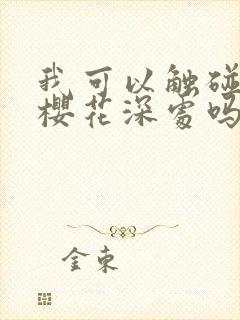 我可以触碰
樱花深处吗
金束